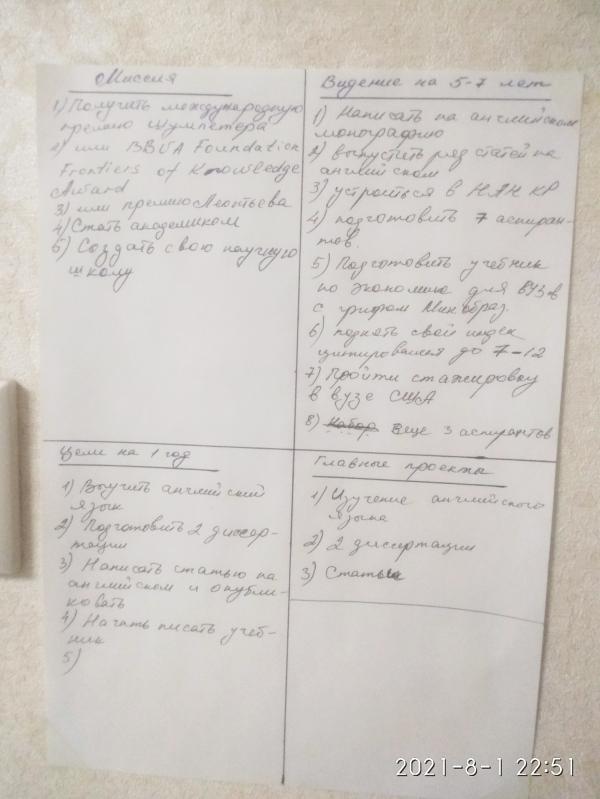 Миссия
1) Получить международную
премию Шумпетера
2) или BBVA Foundation
Frontiers of Knowledge
Award
3) или премию Леонтьева
4) Стать академиком
5) Создать свою научную
школу
Видение на 5-7 лет
1) Написать на английском
монографию
2) выпустить ряд статей на
английском
3) устроиться в НАН КР
4) подготовить 7 аспиран-
тов.
5) Подготовить учебник
по экономике для ВУЗов
с грифом Минобраз.
6) поднять свой индек
цитирования до 7-12
7) Пройти стажировку
в вузе США
8) Набор еще 3 аспирантов
Цели на 1 год
1) Выучить английский
язык
2) Подготовить 2 диссер-
тации
3) Написать статью на
английском и опубли-
ковать
4) Начать писать учеб-
ник
5)
Главные проекты
1) Изучение английского
языка
2) 2 диссертации
3) Статьи
2021-8-1 22:51